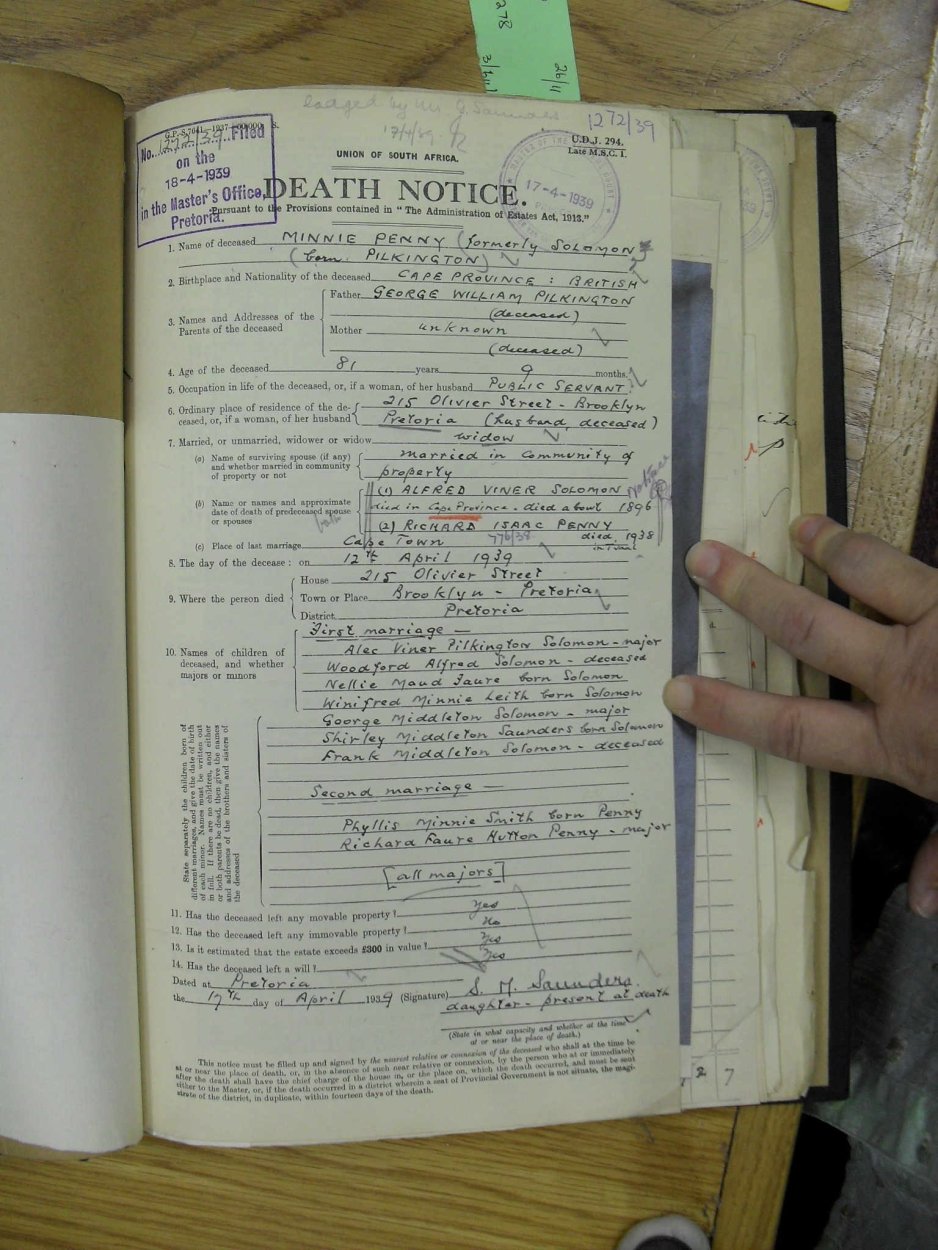 278
26/11
3/611
lodged by Mr. G. Saunders
17/4/39
1272/39
G.P.-S.7641-1937-
S.
No. 1272/39 Filed
on the
18-4-1939
in the Master's Office,
Pretoria.
U.D.J. 294.
Late M.S.C. 1.
17-4-1939
UNION OF SOUTH AFRICA.
DEATH NOTICE.
Pursuant to the Provisions contained in "The Administration of Estates Act, 1913."
1. Name of deceased MINNIE PENNY (formerly SOLOMON)
(born PILKINGTON)
2. Birthplace and Nationality of the deceased CAPE PROVINCE : BRITISH
3. Names and Addresses of the Parents of the deceased
Father GEORGE WILLIAM PILKINGTON
(deceased)
Mother unknown
(deceased)
4. Age of the deceased 81 years 9 months.
5. Occupation in life of the deceased, or, if a woman, of her husband PUBLIC SERVANT.
6. Ordinary place of residence of the deceased, or, if a woman, of her husband
215 Olivier Street - Brooklyn
Pretoria (husband, deceased)
7. Married, or unmarried, widower or widow widow
(a) Name of surviving spouse (if any) and whether married in community of property or not
married in community of
property
(b) Name or names and approximate date of death of predeceased spouse or spouses
(1) ALFRED VINER SOLOMON
died in Cape Province. died about 1896
(2) RICHARD ISAAC PENNY
776/38 died, 1938
in Tvaal
(c) Place of last marriage Cape Town
8. The day of the decease : on 12th April 1939
9. Where the person died
House 215 Olivier Street
Town or Place Brooklyn - Pretoria
District Pretoria
10. Names of children of deceased, and whether majors or minors
First marriage —
Alec Viner Pilkington Solomon - major
Woodford Alfred Solomon - deceased
Nellie Maud Faure born Solomon
Winifred Minnie Leith born Solomon
George Middleton Solomon - major
Shirley Middleton Saunders born Solomon
Frank Middleton Solomon - deceased
Second marriage —
Phyllis Minnie Smith born Penny
Richard Faure Hutton Penny - major
[all majors]
State separately the children born of
different marriages, and give the date of birth
of each minor. Names must be written out
in full. If there are no children, and either
or both parents be dead, then give the names
and addresses of the brothers and sisters of
the deceased
11. Has the deceased left any movable property? Yes
12. Has the deceased left any immovable property? No
13. Is it estimated that the estate exceeds £300 in value? Yes
14. Has the deceased left a will? Yes
Dated at Pretoria
the 17th day of April 1939 (Signature) S. M. Saunders.
daughter - present at death
(State in what capacity and whether at the time
at or near the place of death.)
This notice must be filled up and signed by the nearest relative or connexion of the deceased who shall at the time be
at or near the place of death, or, in the absence of such near relative or connexion, by the person who at or immediately
after the death shall have the chief charge of the house in, or the place on, which the death occurred, and must be sent
either to the Master, or, if the death occurred in a district wherein a seat of Provincial Government is not situate, the magi-
strate of the district, in duplicate, within fourteen days of the death.
2 7